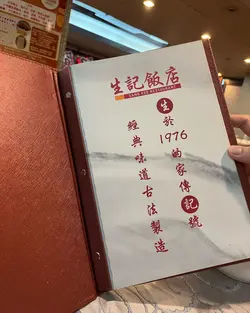 生記飯店
SANG KEE RESTAURANT
生於1976的家傳記號
經典味道古法製造